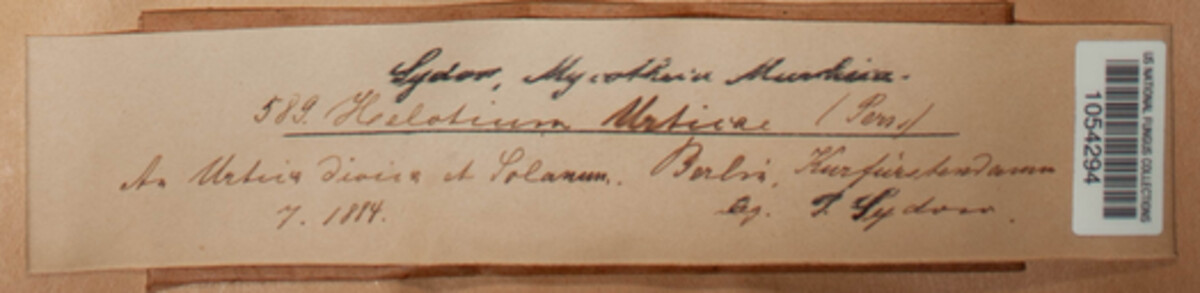 Sydow, Mycotheca Marchica.
589. Helotium Urticae (Pers.)
An Urtica dioica et Solanum. Berlin, Kurfürstendamm
7. 1884. leg. P. Sydow.
US NATIONAL FUNGUS COLLECTIONS
1054294